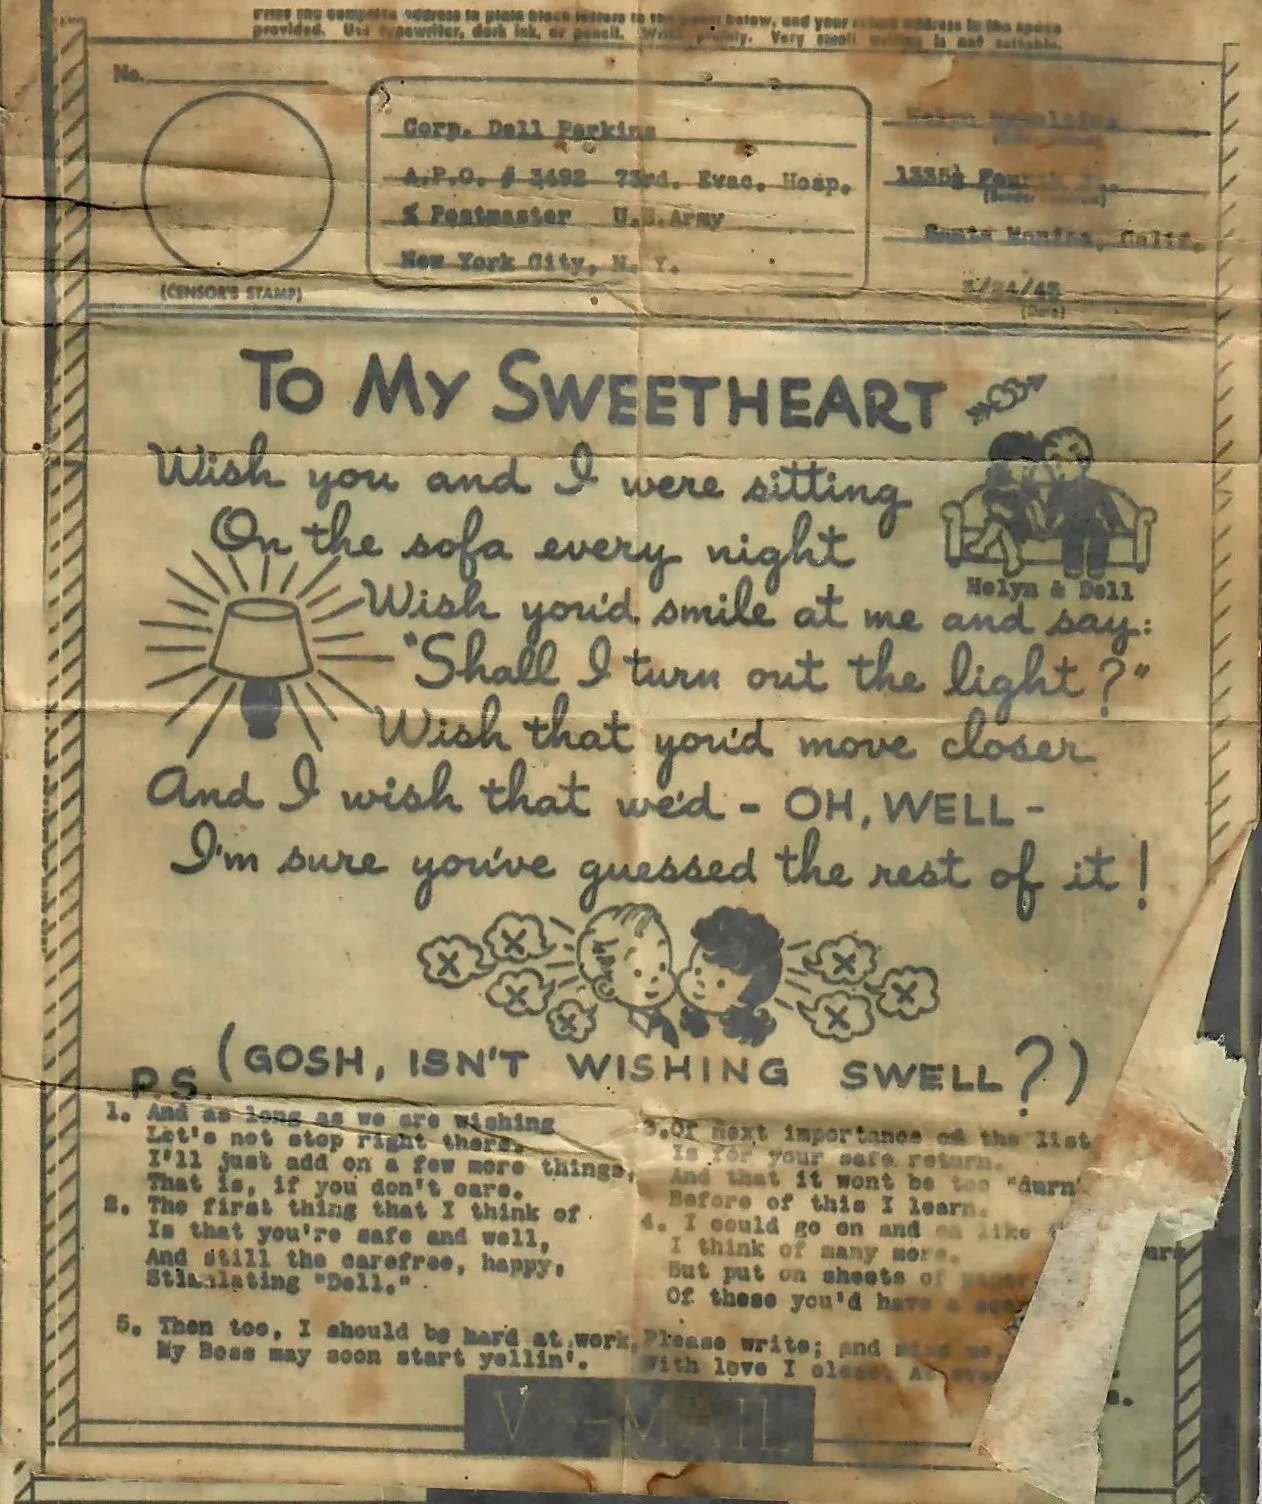 Print the complete address in plain block letters in the panel below, and your return address in the space
provided. Use typewriter, dark ink, or pencil. Write plainly. Very small writing is not suitable.
No.
(CENSOR'S STAMP)
Corp. Dell Perkins
A.P.O. # 3492 73rd. Evac. Hosp.
% Postmaster U.S.Army
New York City, N. Y.
Helyn
1335½ Fourth St.
(Sender's address)
Santa Monica, Calif.
3/24/45
(Date)
TO MY SWEETHEART
Wish you and I were sitting
On the sofa every night
Helyn & Dell
Wish you'd smile at me and say:
"Shall I turn out the light?"
Wish that you'd move closer
And I wish that we'd - OH, WELL -
I'm sure you've guessed the rest of it!
X X X X X X X X
(GOSH, ISN'T WISHING SWELL?)
P.S.
1. And as long as we are wishing
Let's not stop right there.
I'll just add on a few more things,
That is, if you don't care.
2. The first thing that I think of
Is that you're safe and well,
And still the carefree, happy,
Stimulating "Dell."
3.Of next importance on the list
Is for your safe return.
And that it wont be too "durn"
Before of this I learn.
4. I could go on and on like
I think of many more.
But put on sheets of paper
Of these you'd have a
5. Then too, I should be hard at work,
My Boss may soon start yellin'.
Please write; and miss me,
With love I close, As ever
V - MAIL